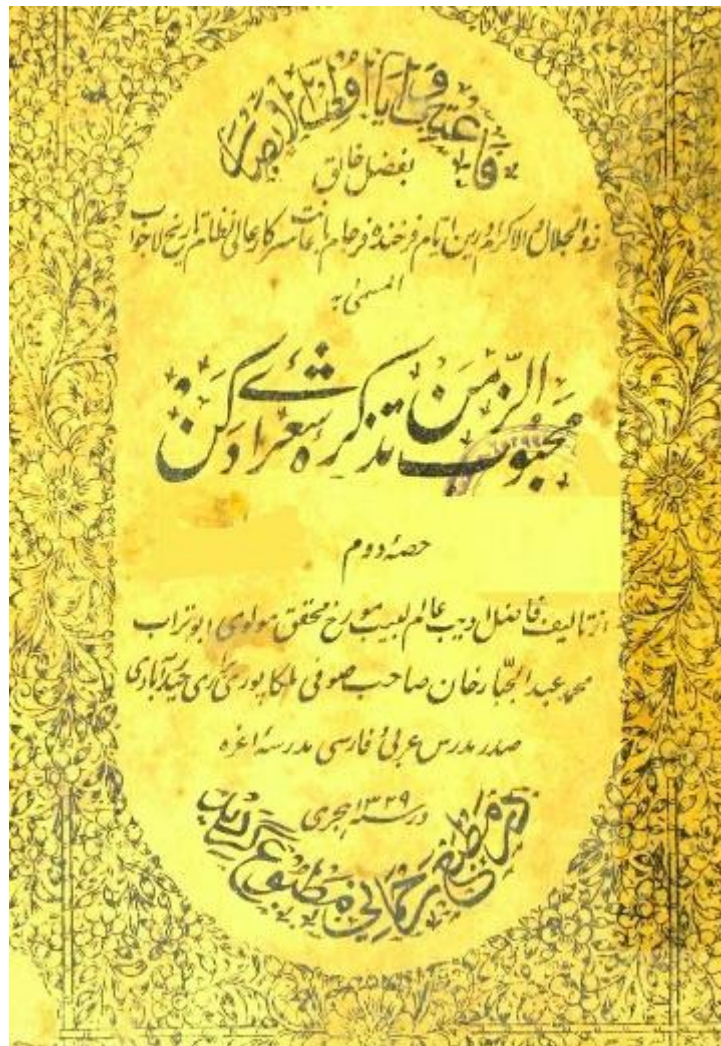 فاعتبروا یا اولی الابصار
بفضل خالق
ذو الجلال والاکرام درین ایام فرخنده فرجام باعانت سرکار عالی نظام تاریخ لاجواب
المسمیٰ بہ
محبوب الزمن تذکرهٔ شعرائے دکن
حصهٔ دوم
از تالیف فاضل ادیب عالم لبیب مورخ محقق مولوی ابوتراب
محمد عبد الجبّار خان صاحب صوفی ملکاپوری براری حیدرآبادی
صدر مدرس عربی فارسی مدرسهٔ اعزه
در سنه ۱۳۲۹ هجری
در مطبع رحمانی مطبوع گردید